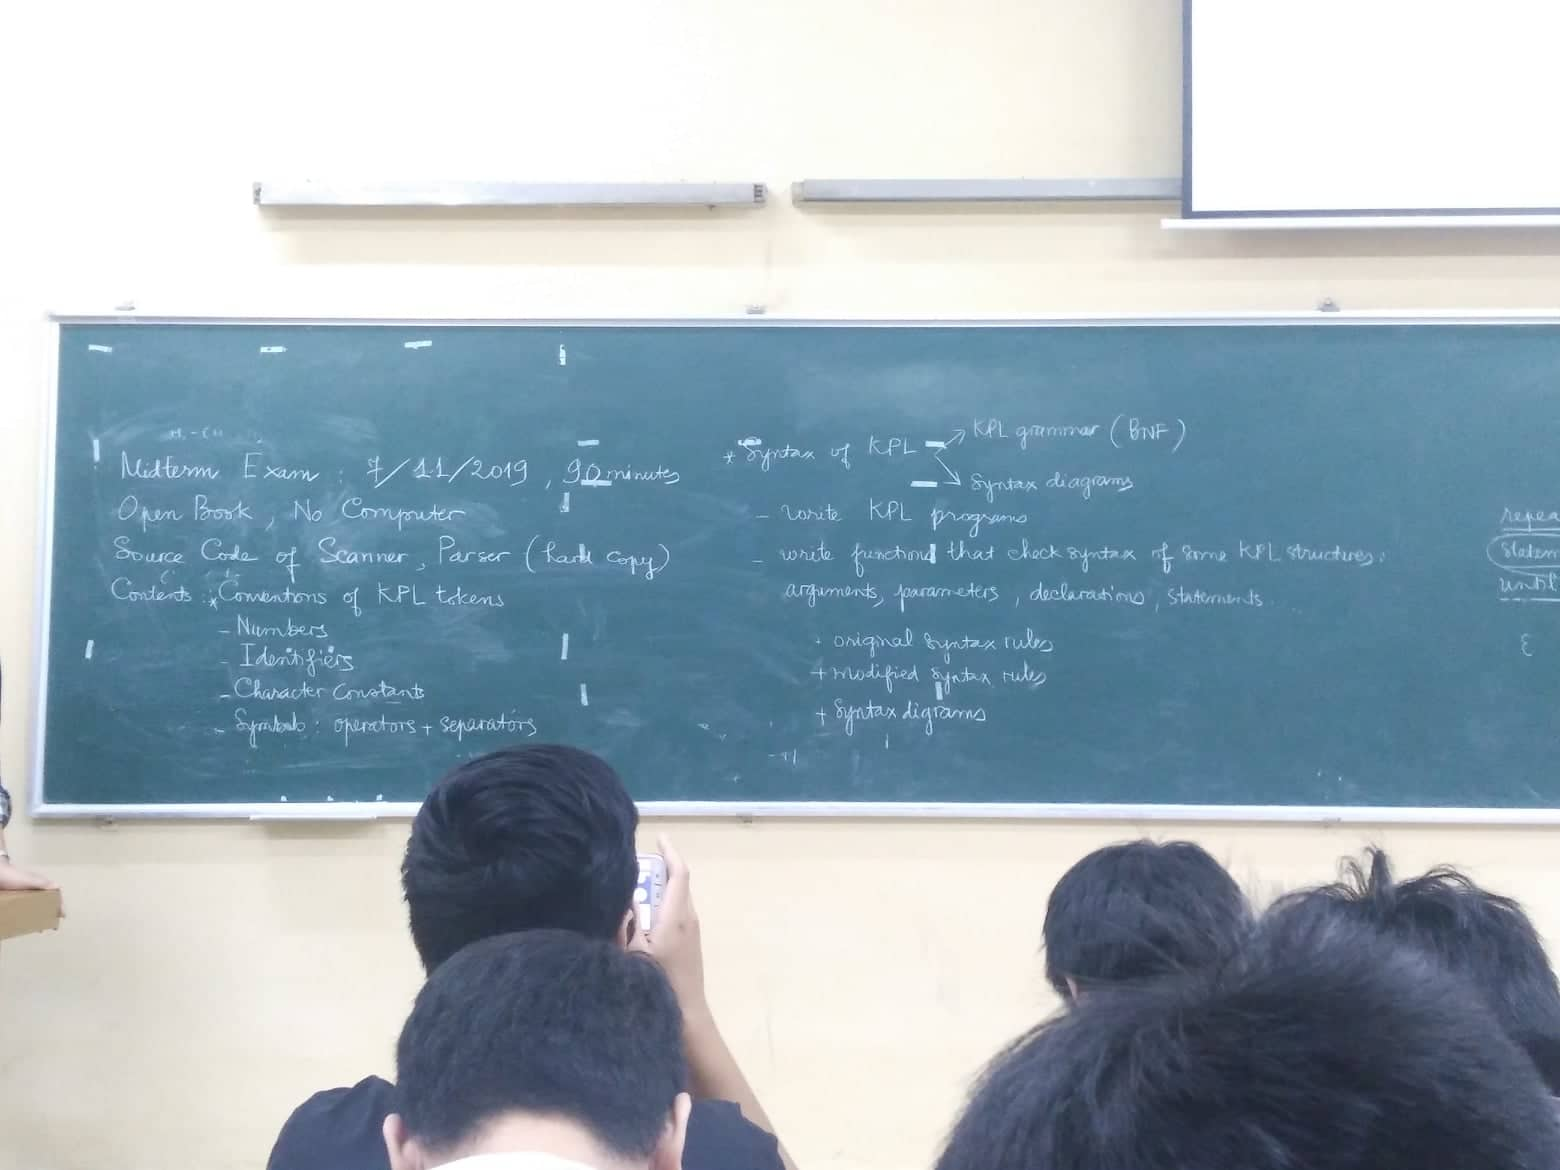 Midterm Exam : 7/11/2019, 90 minutes
Open Book, No Computer
Source Code of Scanner, Parser (hard copy)
Contents : * Conventions of KPL tokens
- Numbers
- Identifiers
- Character Constants
- Symbols : operators + separators
* Syntax of KPL → KPL grammar (BNF)
↘ Syntax diagrams
- write KPL programs
- write functions that check syntax of some KPL structures:
arguments, parameters, declarations, statements...
+ original syntax rules
+ modified syntax rules
+ Syntax digrams
repea
Statem
until
ε